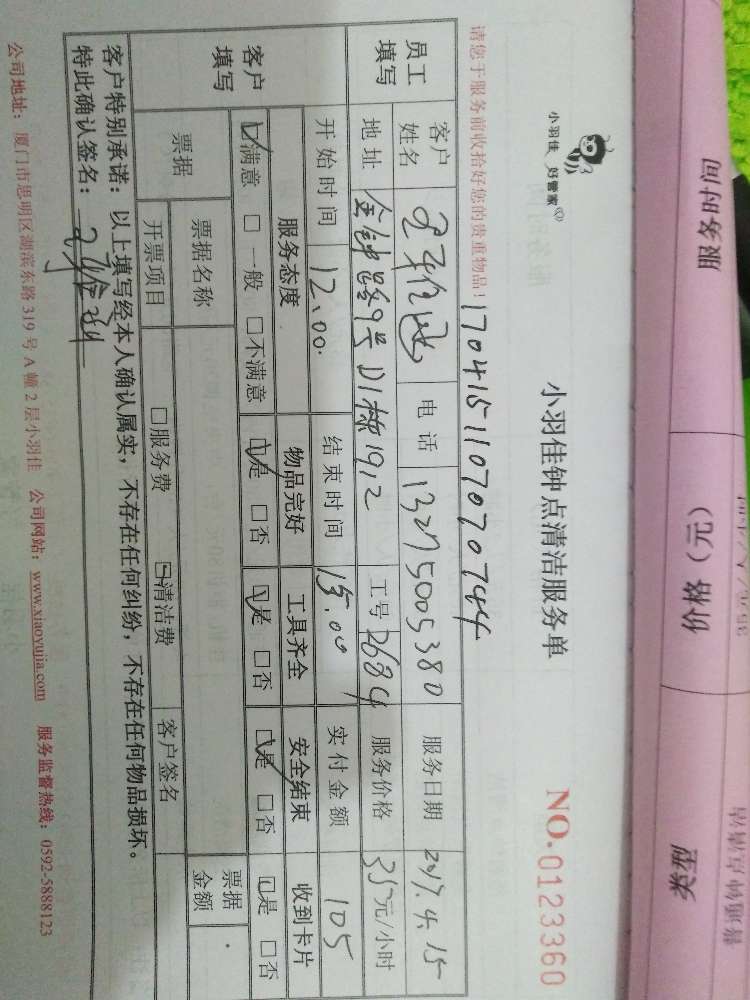 小羽佳 好管家
小羽佳钟点清洁服务单
NO.0123360
请您于服务前收拾好您的贵重物品!
1704151107070744
员工填写 客户姓名 电话 13275005380 服务日期 2017.4.15
地址 金钟路9号D1栋1912 工号 2684 服务价格 35元/小时
客户填写 开始时间 12.00 结束时间 15.00 实付金额 105
服务态度 物品完好 工具齐全 安全结束 收到卡片
☑满意 □一般 □不满意 ☑是 □否 ☑是 □否 ☑是 □否 □是 □否
票据 票据名称 票据金额
开票项目 □服务费 □清洁费 客户签名
客户特别承诺:以上填写经本人确认属实,不存在任何纠纷,不存在任何物品损坏。
特此确认签名:
公司地址:厦门市思明区湖滨东路319号A幢2层小羽佳 公司网站:www.xiaoyujia.com 服务监督热线:0592-5888123
服务时间 价格(元) 类型